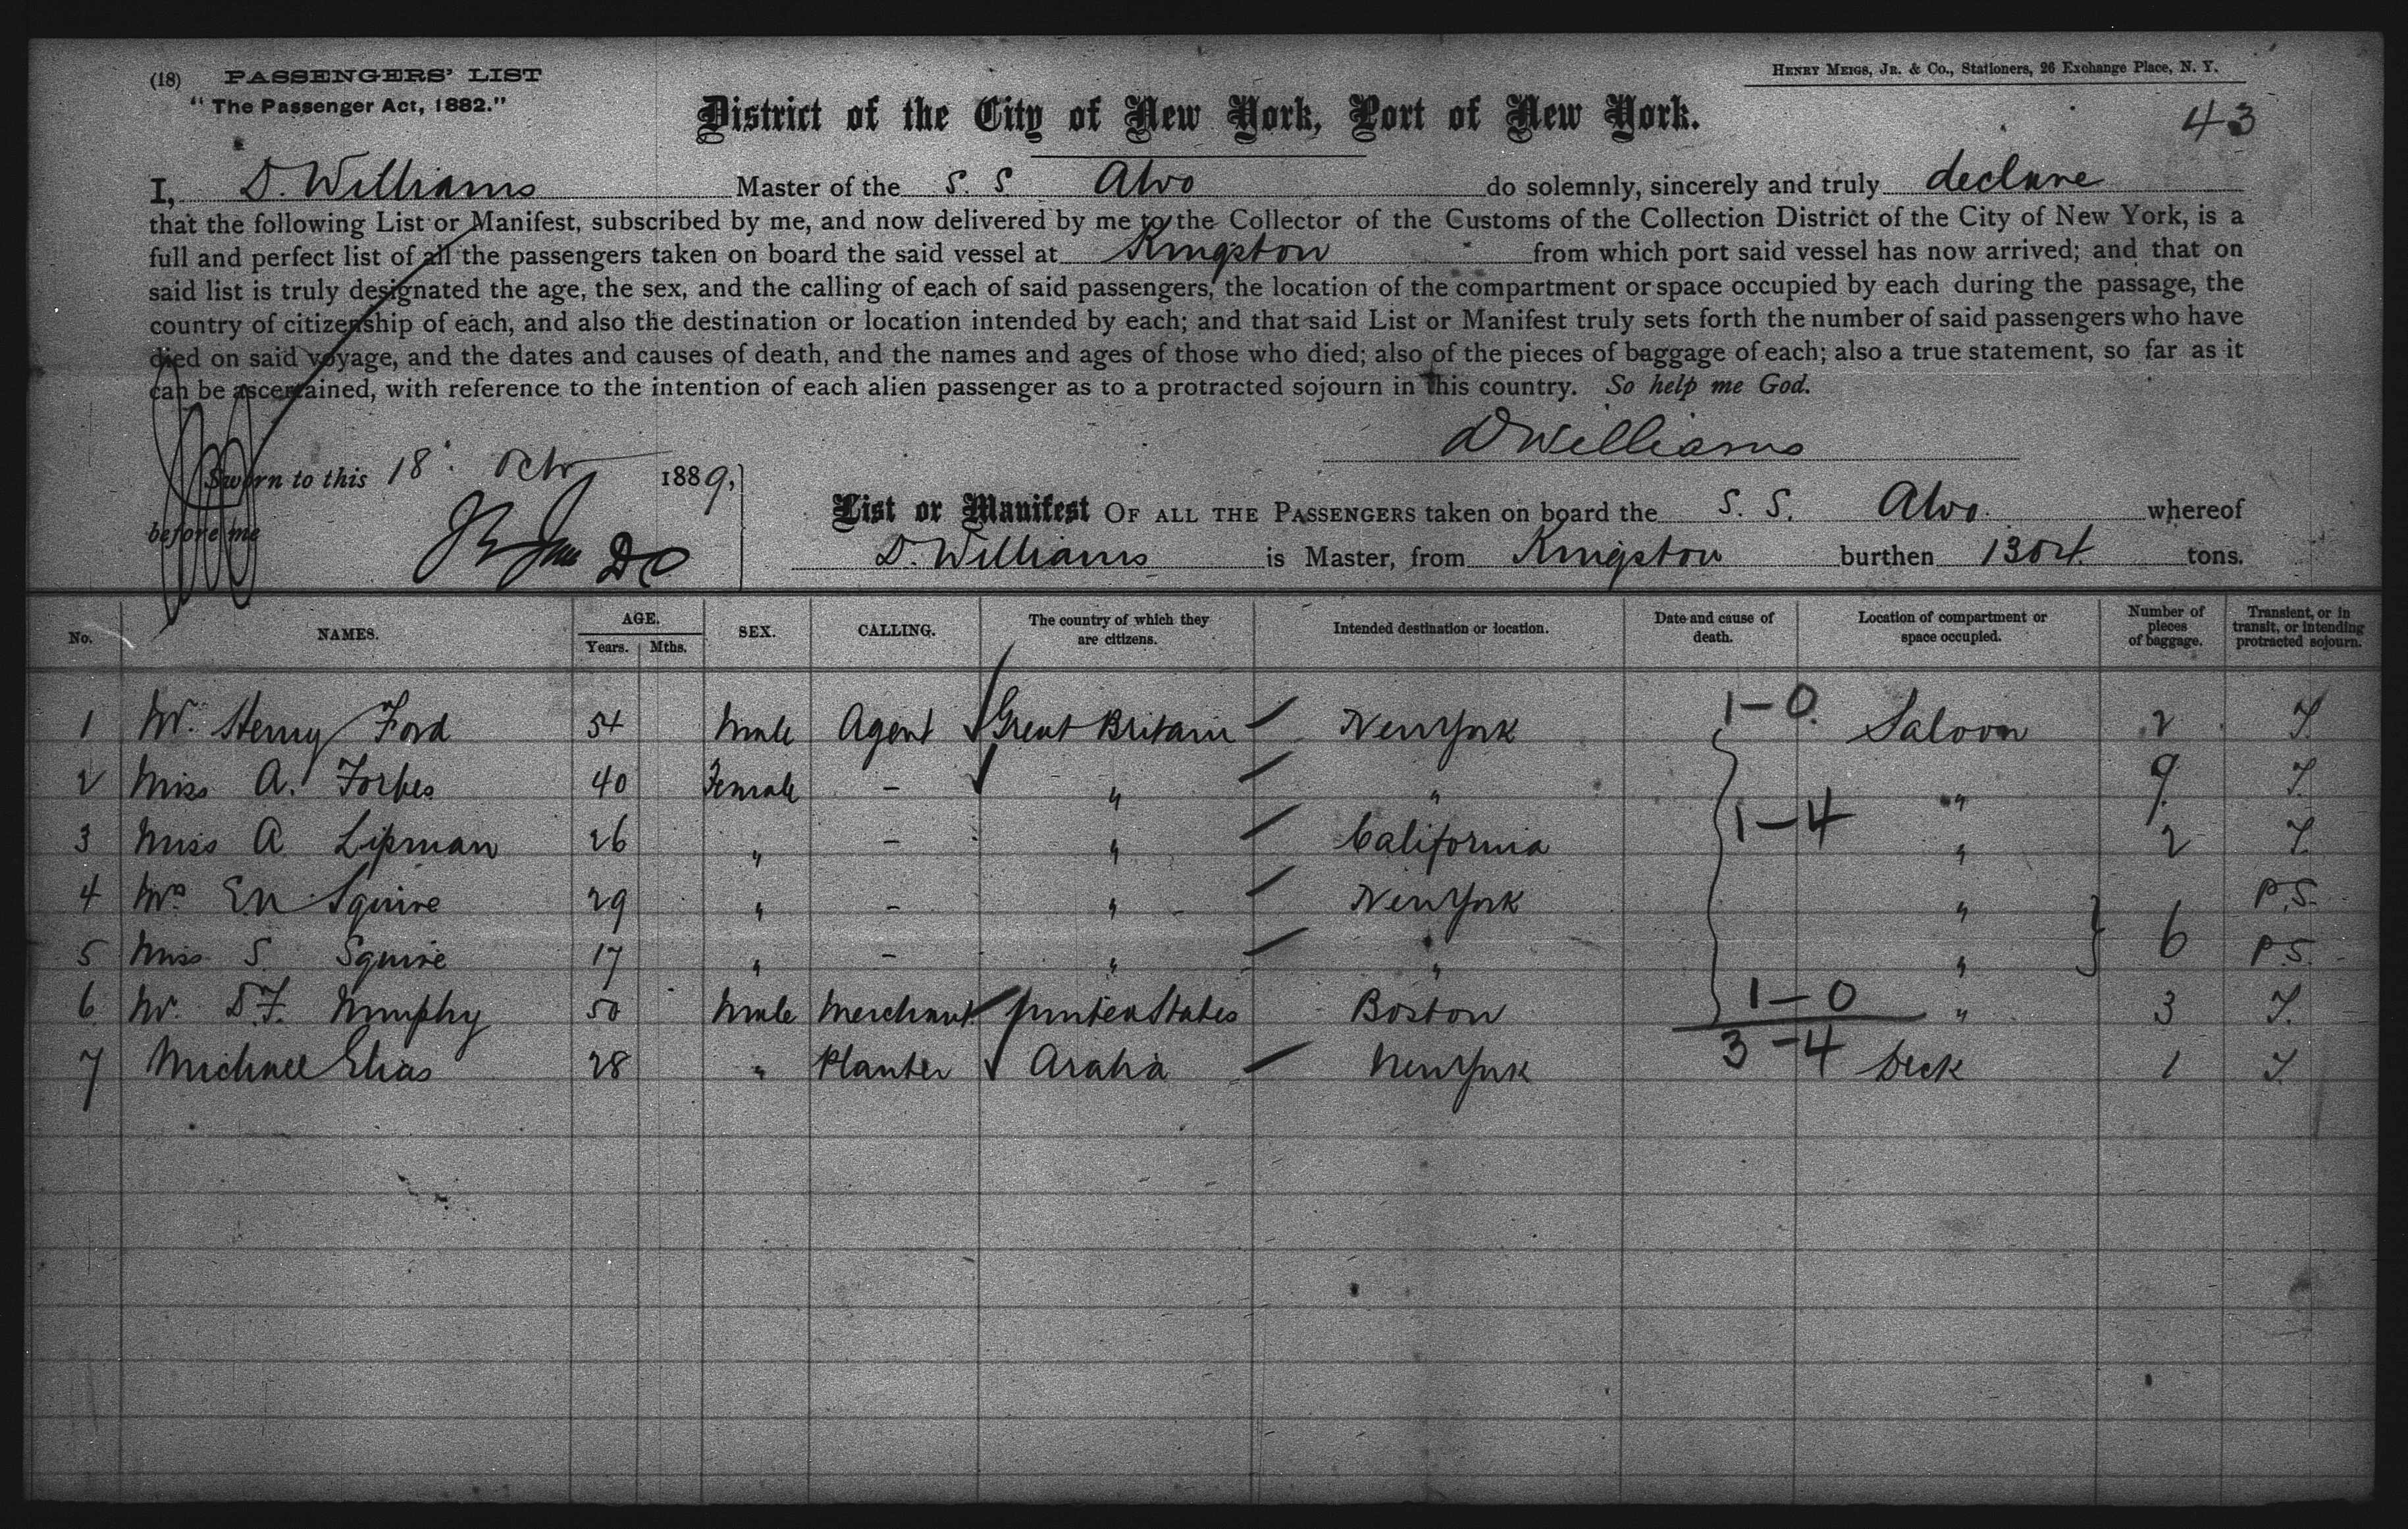 (18) PASSENGERS' LIST
HENRY MEIGS, JR. & CO., Stationers, 26 Exchange Place, N. Y.
"The Passenger Act, 1882."
District of the City of New York, Port of New York.
43
I, D. Williams Master of the S. S. Alvo do solemnly, sincerely and truly declare
that the following List or Manifest, subscribed by me, and now delivered by me to the Collector of the Customs of the Collection District of the City of New York, is a
full and perfect list of all the passengers taken on board the said vessel at Kingston from which port said vessel has now arrived; and that on
said list is truly designated the age, the sex, and the calling of each of said passengers, the location of the compartment or space occupied by each during the passage, the
country of citizenship of each, and also the destination or location intended by each; and that said List or Manifest truly sets forth the number of said passengers who have
died on said voyage, and the dates and causes of death, and the names and ages of those who died; also of the pieces of baggage of each; also a true statement, so far as it
can be ascertained, with reference to the intention of each alien passenger as to a protracted sojourn in this country. So help me God.
D Williams
Sworn to this 18 Octr 1889,
before me
List or Manifest OF ALL THE PASSENGERS taken on board the S. S. Alvo whereof
D. Williams is Master, from Kingston burthen 1304 tons.
No. NAMES. AGE. Years. Mths. SEX. CALLING. The country of which they are citizens. Intended destination or location. Date and cause of death. Location of compartment or space occupied. Number of pieces of baggage. Transient, or in transit, or intending protracted sojourn.
1 Mr. Henry Ford 54 Male Agent Great Britain New York 1-0 Saloon 2 T.
2 Miss A. Forbes 40 Female - " " " 9 T.
3 Miss A Lipman 26 " - " California 1-4 " 2 T.
4 Mrs E.N Squire 29 " - " New York " P.S.
5 Miss S Squire 17 " - " " " 6 P.S.
6 Mr. D.F. Murphy 50 Male Merchant United States Boston 1-0 " 3 T.
7 Michael Elias 28 " Planter Arabia New York 3-4 Deck 1 T.